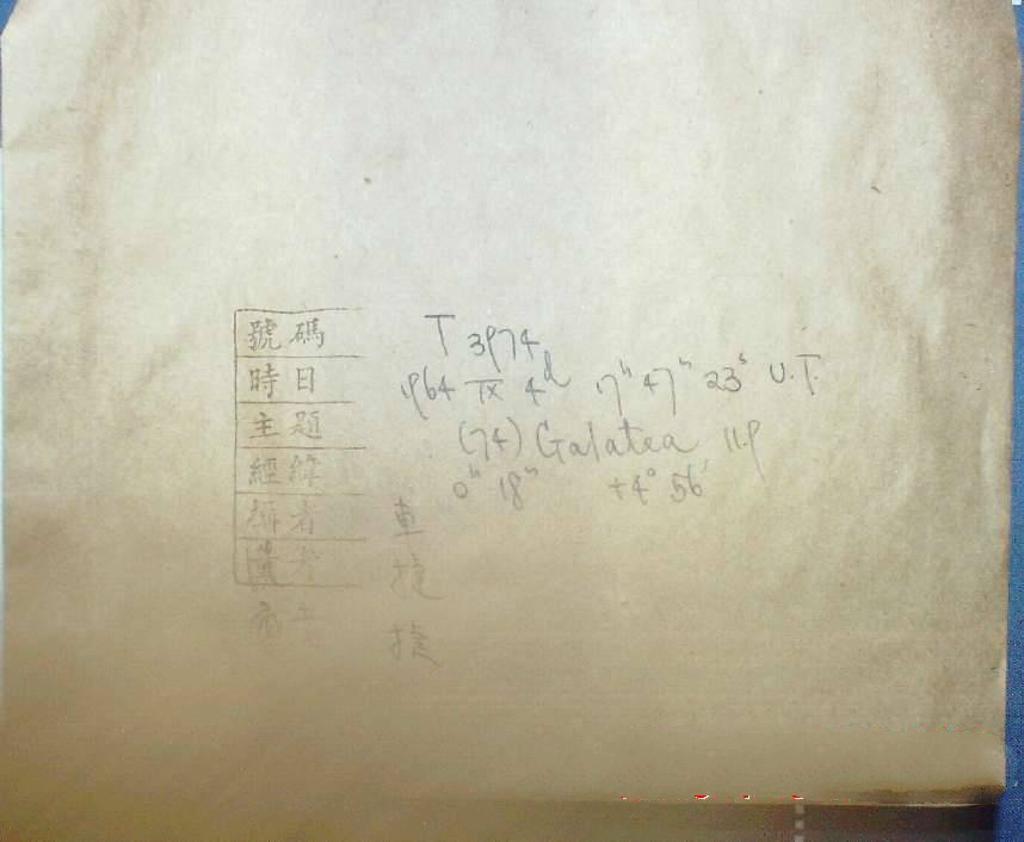 號碼 T 3974
時日 1964 IX 4d 17h 47m 23s U.T.
主題 (74) Galatea 11.9
經緯 0h 18m +4° 56'
者 車
捷
捷